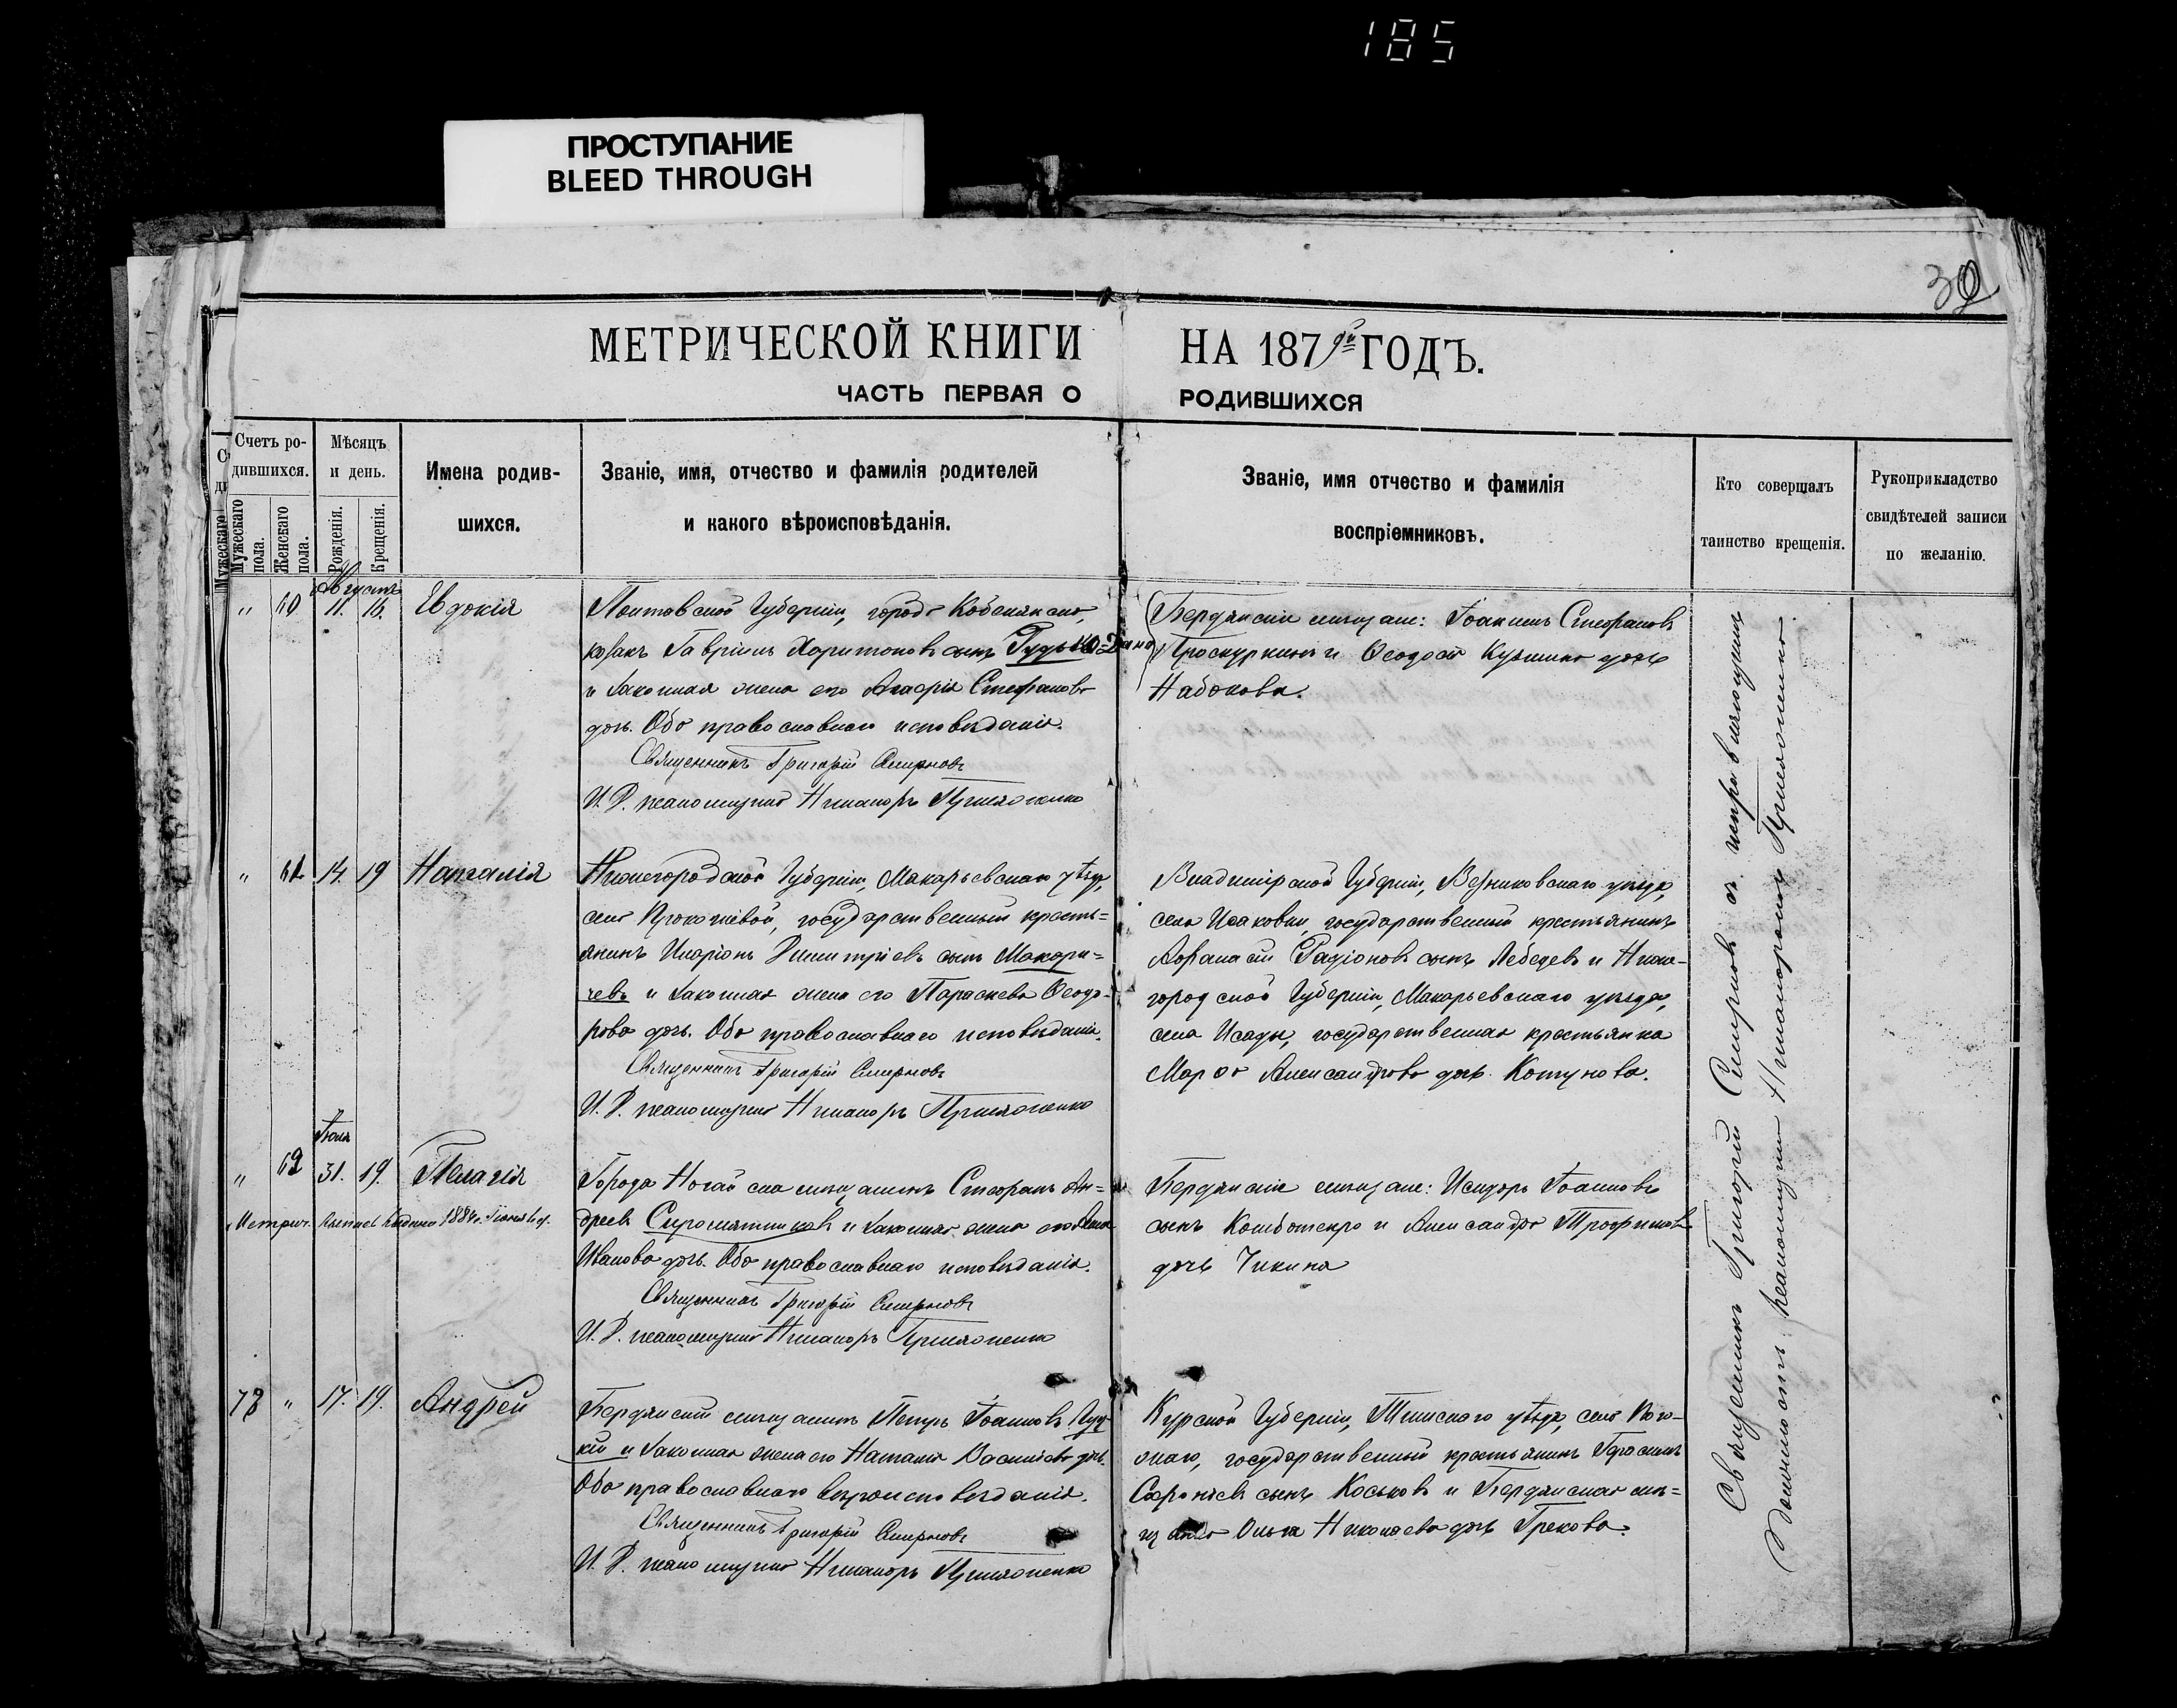 185
ПРОСТУПАНИЕ
BLEED THROUGH
39
МЕТРИЧЕСКОЙ КНИГИ НА 1879й ГОДЪ.
ЧАСТЬ ПЕРВАЯ О РОДИВШИХСЯ
Счетъ ро-
дившихся.
Мужескаго пола.
Женскаго пола.
Мѣсяцъ
и день.
Рожденія.
Крещенія.
Имена родив-
шихся.
Званіе, имя, отчество и фамилія родителей
и какого вѣроисповѣданія.
Званіе, имя отчество и фамилія
воспріемниковъ.
Кто совершалъ
таинство крещенія.
Рукоприкладство
свидѣтелей записи
по желанію.
Августа
" 60 11. 16. Евдокія
Полтавской Губерніи, города Кобеляк
козакъ Гавріилъ Харитоновъ сынъ
и законная жена его Агафія Стефанова
дочь. Оба православнаго исповѣданія.
Священникъ Григорій Смирновъ
И. Д. псаломщика Никаноръ
Бердянскіе мѣщане: Іоакимъ Стефановъ
Проскуркинъ и Ѳеодосія Кузьмина дочь
Набокова.
" 61 14. 19 Наталія
Нижегородской Губерніи, Макарьевскаго уѣзда,
села государственный кресть=
янинъ Иларіонъ Димитріевъ сынъ Макари=
чевъ и законная жена его Параскева Ѳеодо-
рова дочь. Оба православнаго исповѣданія.
Священникъ Григорій Смирновъ
И. Д. псаломщика Никаноръ
Владимірской Губерніи, Вязниковскаго уѣзда,
села Исаковки, государственный крестьянинъ
Аѳанасій сынъ Лебедевъ и Ниже-
городской Губерніи, Макарьевскаго уѣзда,
села Исады, государственная крестьянка
Марѳа Александрова дочь Котунова.
Іюля
" 62 31. 19. Пелагія
Метрич. 1884 г. Іюня
Города Ногайска мѣщанинъ Стефанъ Ан=
дреевъ Сыромятниковъ и законная жена его
Иванова дочь. Оба православнаго исповѣданія.
Священникъ Григорій Смирновъ
И. Д. псаломщика Никаноръ
Бердянскіе мѣщане: Исидоръ Іоанновъ
сынъ и Александра Трофимова
дочь Чикина
78 " 17. 19. Андрей
Бердянскій мѣщанинъ Петръ Іоанновъ
кій и законная жена его Наталія Василіева дочь.
Оба православнаго вѣроисповѣданія.
Священникъ Григорій Смирновъ
И. Д. псаломщика Никаноръ
Курской Губерніи, Тимскаго уѣзда, села Пого-
жаго, государственный крестьянинъ Герасимъ
сынъ Коськовъ и Бердянская мѣ=
щанка Ольга Николаева дочь Грекова.
Священникъ Григорій Смирновъ съ исправляющимъ
Должность псаломщика Никаноромъ